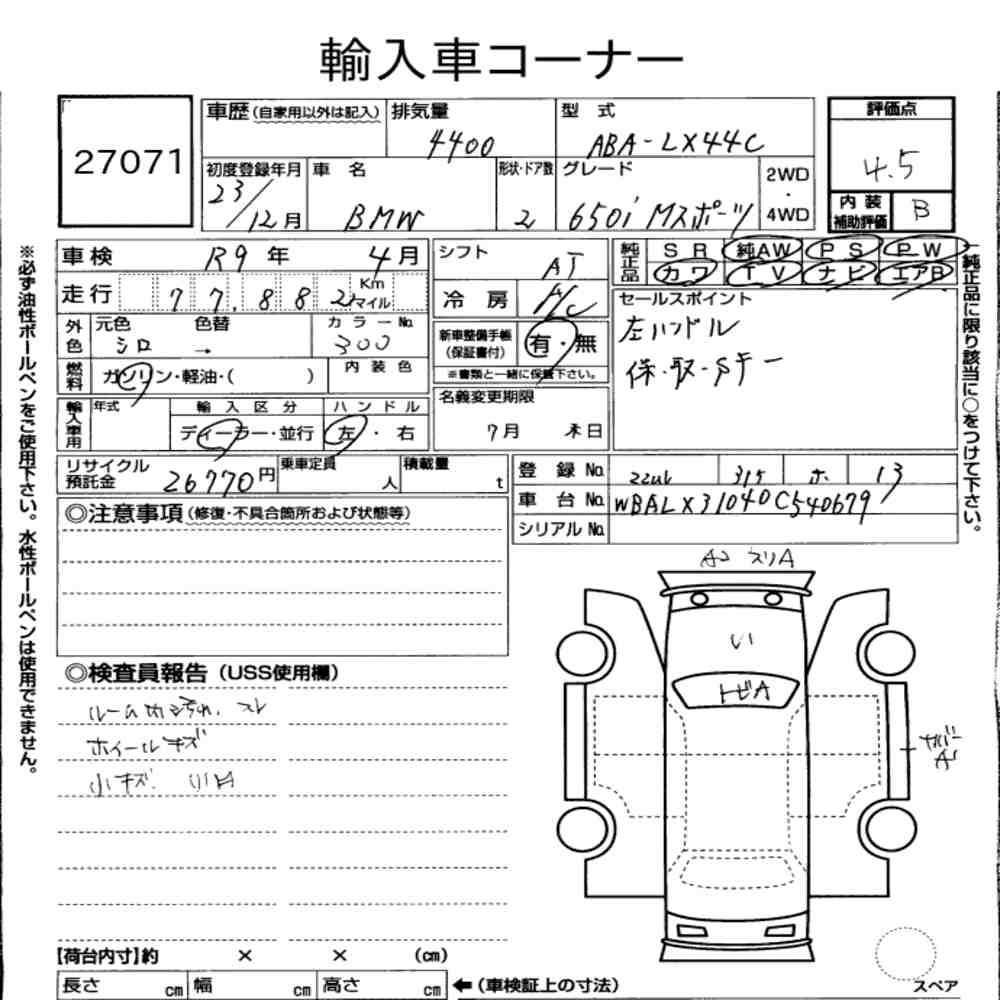 輸入車コーナー
27071
車歴(自家用以外は記入)
排気量
4400
型 式
ABA-LX44C
評価点
4.5
初度登録年月
23/12月
車 名
BMW
形状・ドア数
2
グレード
650i Mスポーツ
2WD
・
4WD
内 装
補助評価
B
車検 R9 年 4月
走行 77,882 Km
マイル
シフト
AT
冷 房
A/C
純正品
SR 純AW PS PW
カワ TV ナビ エアB
外色
元色 色替
シロ →
カラーNo.
300
新車整備手帳
(保証書付)
有・無
※書類と一緒に保管下さい。
セールスポイント
左ハンドル
保・取・Sキー
燃料
ガソリン・軽油・( )
内 装 色
輸入車用
年式
輸 入 区 分
ディーラー・並行
ハ ン ド ル
左 ・ 右
名義変更期限
7月 末日
リサイクル
預託金
26770円
乗車定員
人
積載量
t
登 録 No. 315 ホ 13
車 台 No. WBALX31040C540679
シリアル No.
◎注意事項(修復・不具合箇所および状態等)
◎検査員報告(USS使用欄)
ルーム内ヨゴレ、スレ
ホイールキズ
小キズ.
トビA
【荷台内寸】約 × × (cm)
長さ cm 幅 cm 高さ cm ←(車検証上の寸法)
スペア
※必ず油性ボールペンをご使用下さい。水性ボールペンは使用できません。
純正品に限り該当に○をつけて下さい。